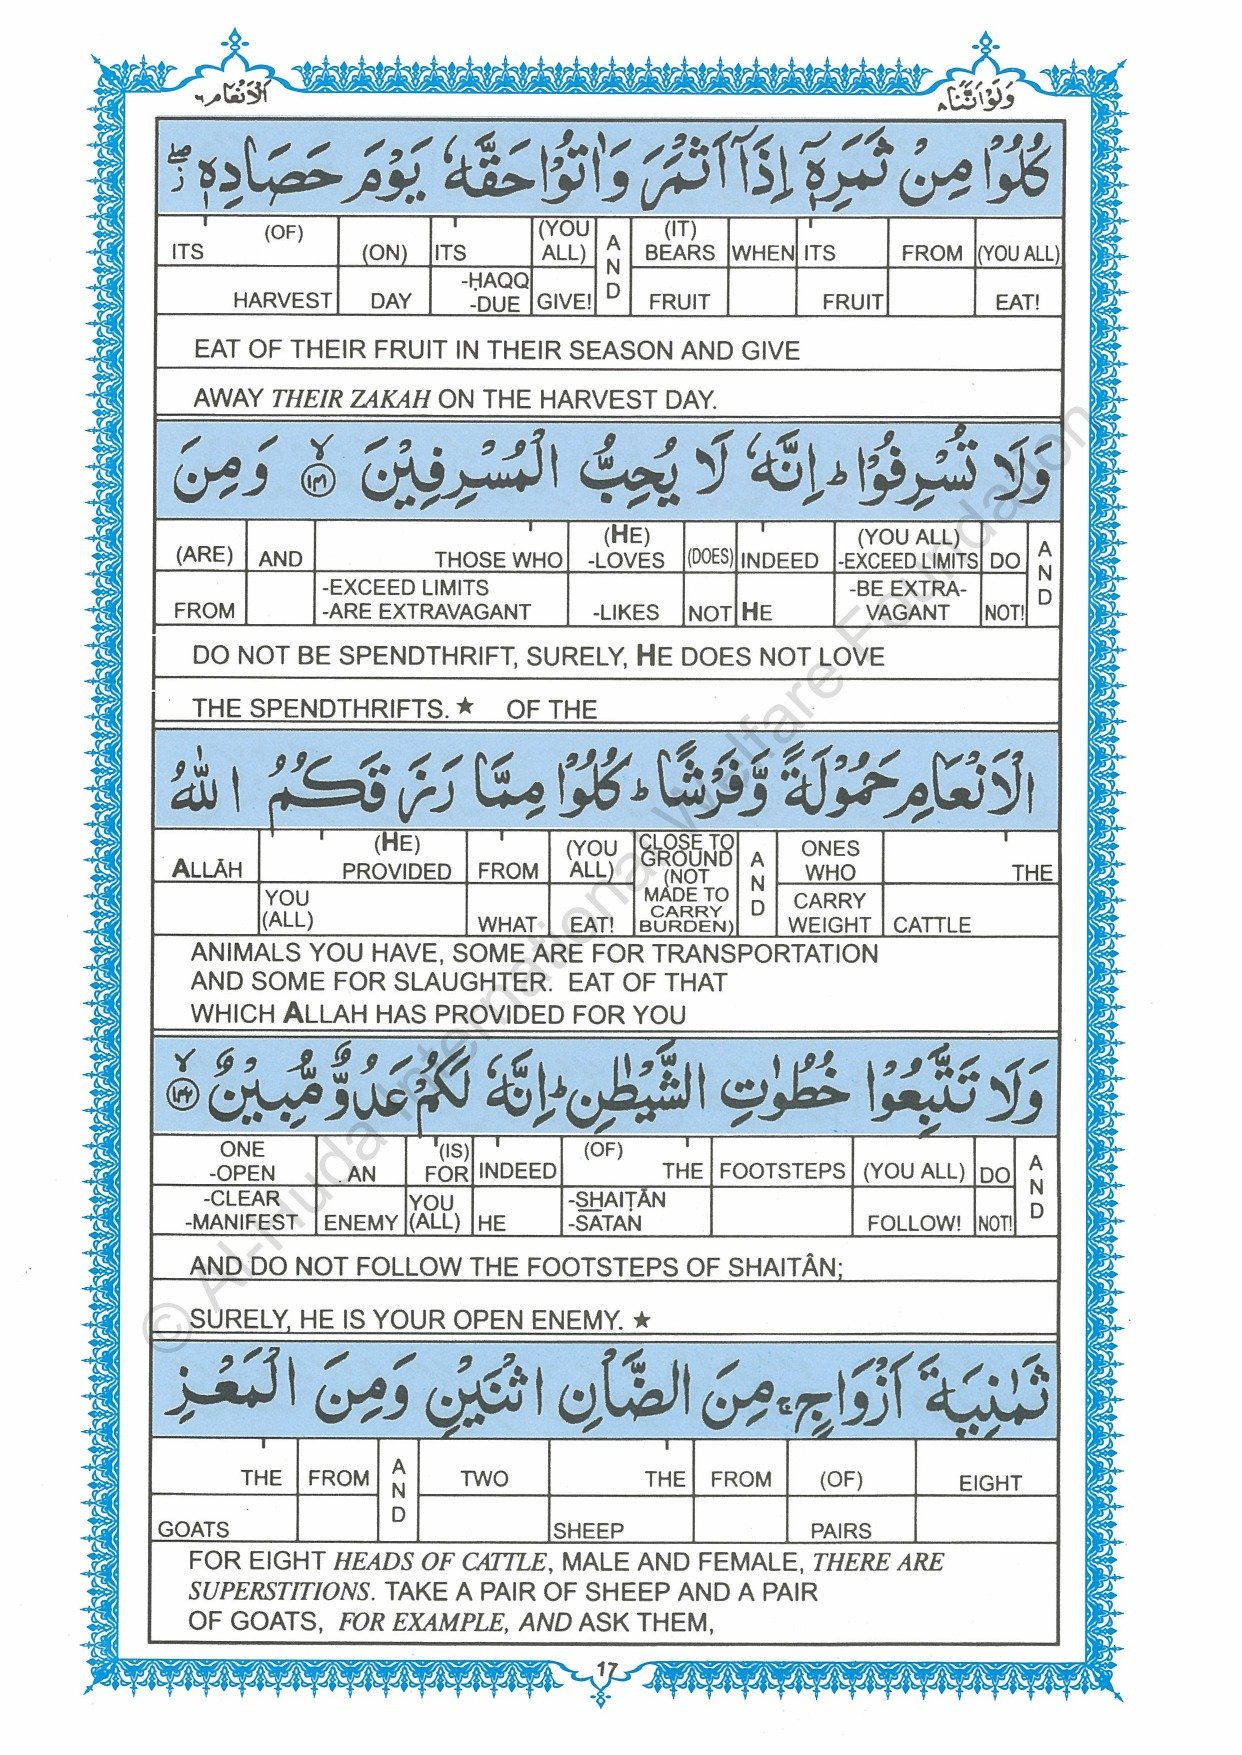 الانعام ٦
ولو اننا ٨
كُلُوْا مِنْ ثَمَرِهٖۤ اِذَاۤ اَثْمَرَ وَاٰتُوْا حَقَّهٗ يَوْمَ حَصَادِهٖ ۖز
ITS (OF) (ON) ITS (YOU ALL) AND (IT) BEARS WHEN ITS FROM (YOU ALL)
HARVEST DAY -ḤAQQ -DUE GIVE! FRUIT FRUIT EAT!
EAT OF THEIR FRUIT IN THEIR SEASON AND GIVE
AWAY THEIR ZAKAH ON THE HARVEST DAY.
وَلَا تُسْرِفُوْا ؕ اِنَّهٗ لَا يُحِبُّ الْمُسْرِفِيْنَ ۙ ١٤١ وَمِنَ
(ARE) AND THOSE WHO (HE) -LOVES (DOES) INDEED (YOU ALL) -EXCEED LIMITS DO AND
FROM -EXCEED LIMITS -ARE EXTRAVAGANT -LIKES NOT HE -BE EXTRA-VAGANT NOT!
DO NOT BE SPENDTHRIFT, SURELY, HE DOES NOT LOVE
THE SPENDTHRIFTS. ★ OF THE
الْاَنْعَامِ حَمُوْلَةً وَّفَرْشًا ؕ كُلُوْا مِمَّا رَزَقَكُمُ اللّٰهُ
ALLĀH (HE) PROVIDED FROM (YOU ALL) CLOSE TO GROUND (NOT MADE TO CARRY BURDEN) AND ONES WHO THE
YOU (ALL) WHAT EAT! CARRY WEIGHT CATTLE
ANIMALS YOU HAVE, SOME ARE FOR TRANSPORTATION
AND SOME FOR SLAUGHTER. EAT OF THAT
WHICH ALLAH HAS PROVIDED FOR YOU
وَلَا تَتَّبِعُوْا خُطُوٰتِ الشَّيْطٰنِ ؕ اِنَّهٗ لَكُمْ عَدُوٌّ مُّبِيْنٌ ۙ ١٤٢
ONE -OPEN AN (IS) FOR INDEED (OF) THE FOOTSTEPS (YOU ALL) DO AND
-CLEAR -MANIFEST ENEMY YOU (ALL) HE -SHAIṬĀN -SATAN FOLLOW! NOT!
AND DO NOT FOLLOW THE FOOTSTEPS OF SHAITÂN;
SURELY, HE IS YOUR OPEN ENEMY. ★
ثَمٰنِيَةَ اَزْوَاجٍ ۚ مِنَ الضَّاْنِ اثْنَيْنِ وَمِنَ الْمَعْزِ
THE FROM AND TWO THE FROM (OF) EIGHT
GOATS SHEEP PAIRS
FOR EIGHT HEADS OF CATTLE, MALE AND FEMALE, THERE ARE
SUPERSTITIONS. TAKE A PAIR OF SHEEP AND A PAIR
OF GOATS, FOR EXAMPLE, AND ASK THEM,
17
© Al-Huda International Welfare Foundation